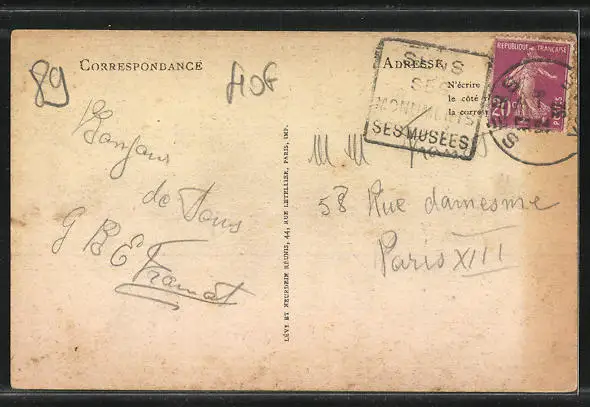 89
CORRESPONDANCE
40F
Bonjour
de Tous
G B E Framat
LÉVY ET NEURDEIN RÉUNIS, 44, RUE LETELLIER, PARIS, IMP.
ADRESSE
N'écrire
le côté
la corres
SENS
SES
MONUMENTS
SES MUSÉES
REPUBLIQUE FRANÇAISE
20c
POSTES
SENS
M. M
58 Rue damesme
Paris XIII